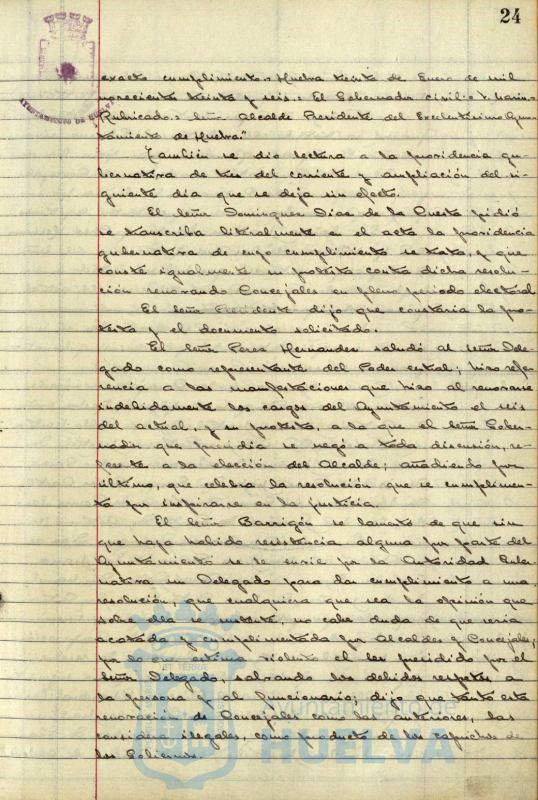 24
AYUNTAMIENTO DE HUELVA
exacto cumplimiento.= Huelva treinta de Enero de mil
novecientos treinta y seis.= El Gobernador civil.= V. Marin=
Rubricado.= Señor Alcalde Presidente del Excelentísimo Ayun-
tamiento de Huelva."
También se dio lectura a la providencia gu-
bernativa de tres del corriente y ampliación del si-
guiente dia que se deja sin efecto.
El Señor Dominguez Dias de la Cuesta pidió
se transcriba literalmente en el acta la providencia
gubernativa de cuyo cumplimiento se trata, y que
conste igualmente su protesta contra dicha resolu-
ción renovando Concejales en pleno periodo electoral
El Señor Presidente dijo que constaria la pro-
testa y el documento solicitado.
El Señor Perez Hernandez saludó al Señor Dele-
gado como representante del Poder central; hizo refe-
rencia a las manifestaciones que hizo al renovarse
indebidamente los cargos del Ayuntamiento el seis
del actual, y su protesta, a la que el Señor Gober-
nador que presidia se negó a toda discusión, re-
ferente a la elección del Alcalde; añadiendo por
último, que celebra la resolución que se cumplimen-
ta por inspirarse en la justicia.
El Señor Barrigón se lamentó de que sin
que haya habido resistencia alguna por parte del
Ayuntamiento se le envie por la Autoridad Guber-
nativa un Delegado para dar cumplimiento a una
resolución, que cualquiera que sea la opinión que
sobre ella se sustente, no cabe duda de que seria
acatada y cumplimentada por Alcaldes y Concejales;
por lo que estima violento el ser presidido por el
Señor Delegado, salvando los debidos respetos a
la persona y al funcionario; dijo que tanto esta
renovación de Concejales como las anteriores, las
considera ilegales, como producto de los caprichos de
los Gobiernos.
Ayuntamiento de
HUELVA